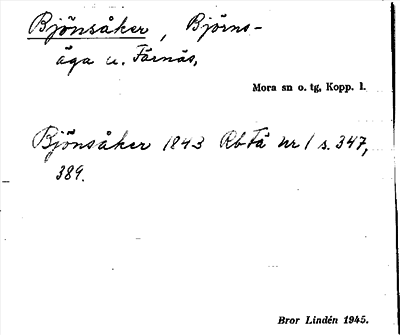 Bjönsåker, Björns-
äga u. Färnäs,
Mora sn o. tg, Kopp. l.
Bjönsåker 1843 Rb Fä nr 1 s. 347,
389.
Bror Lindén 1945.